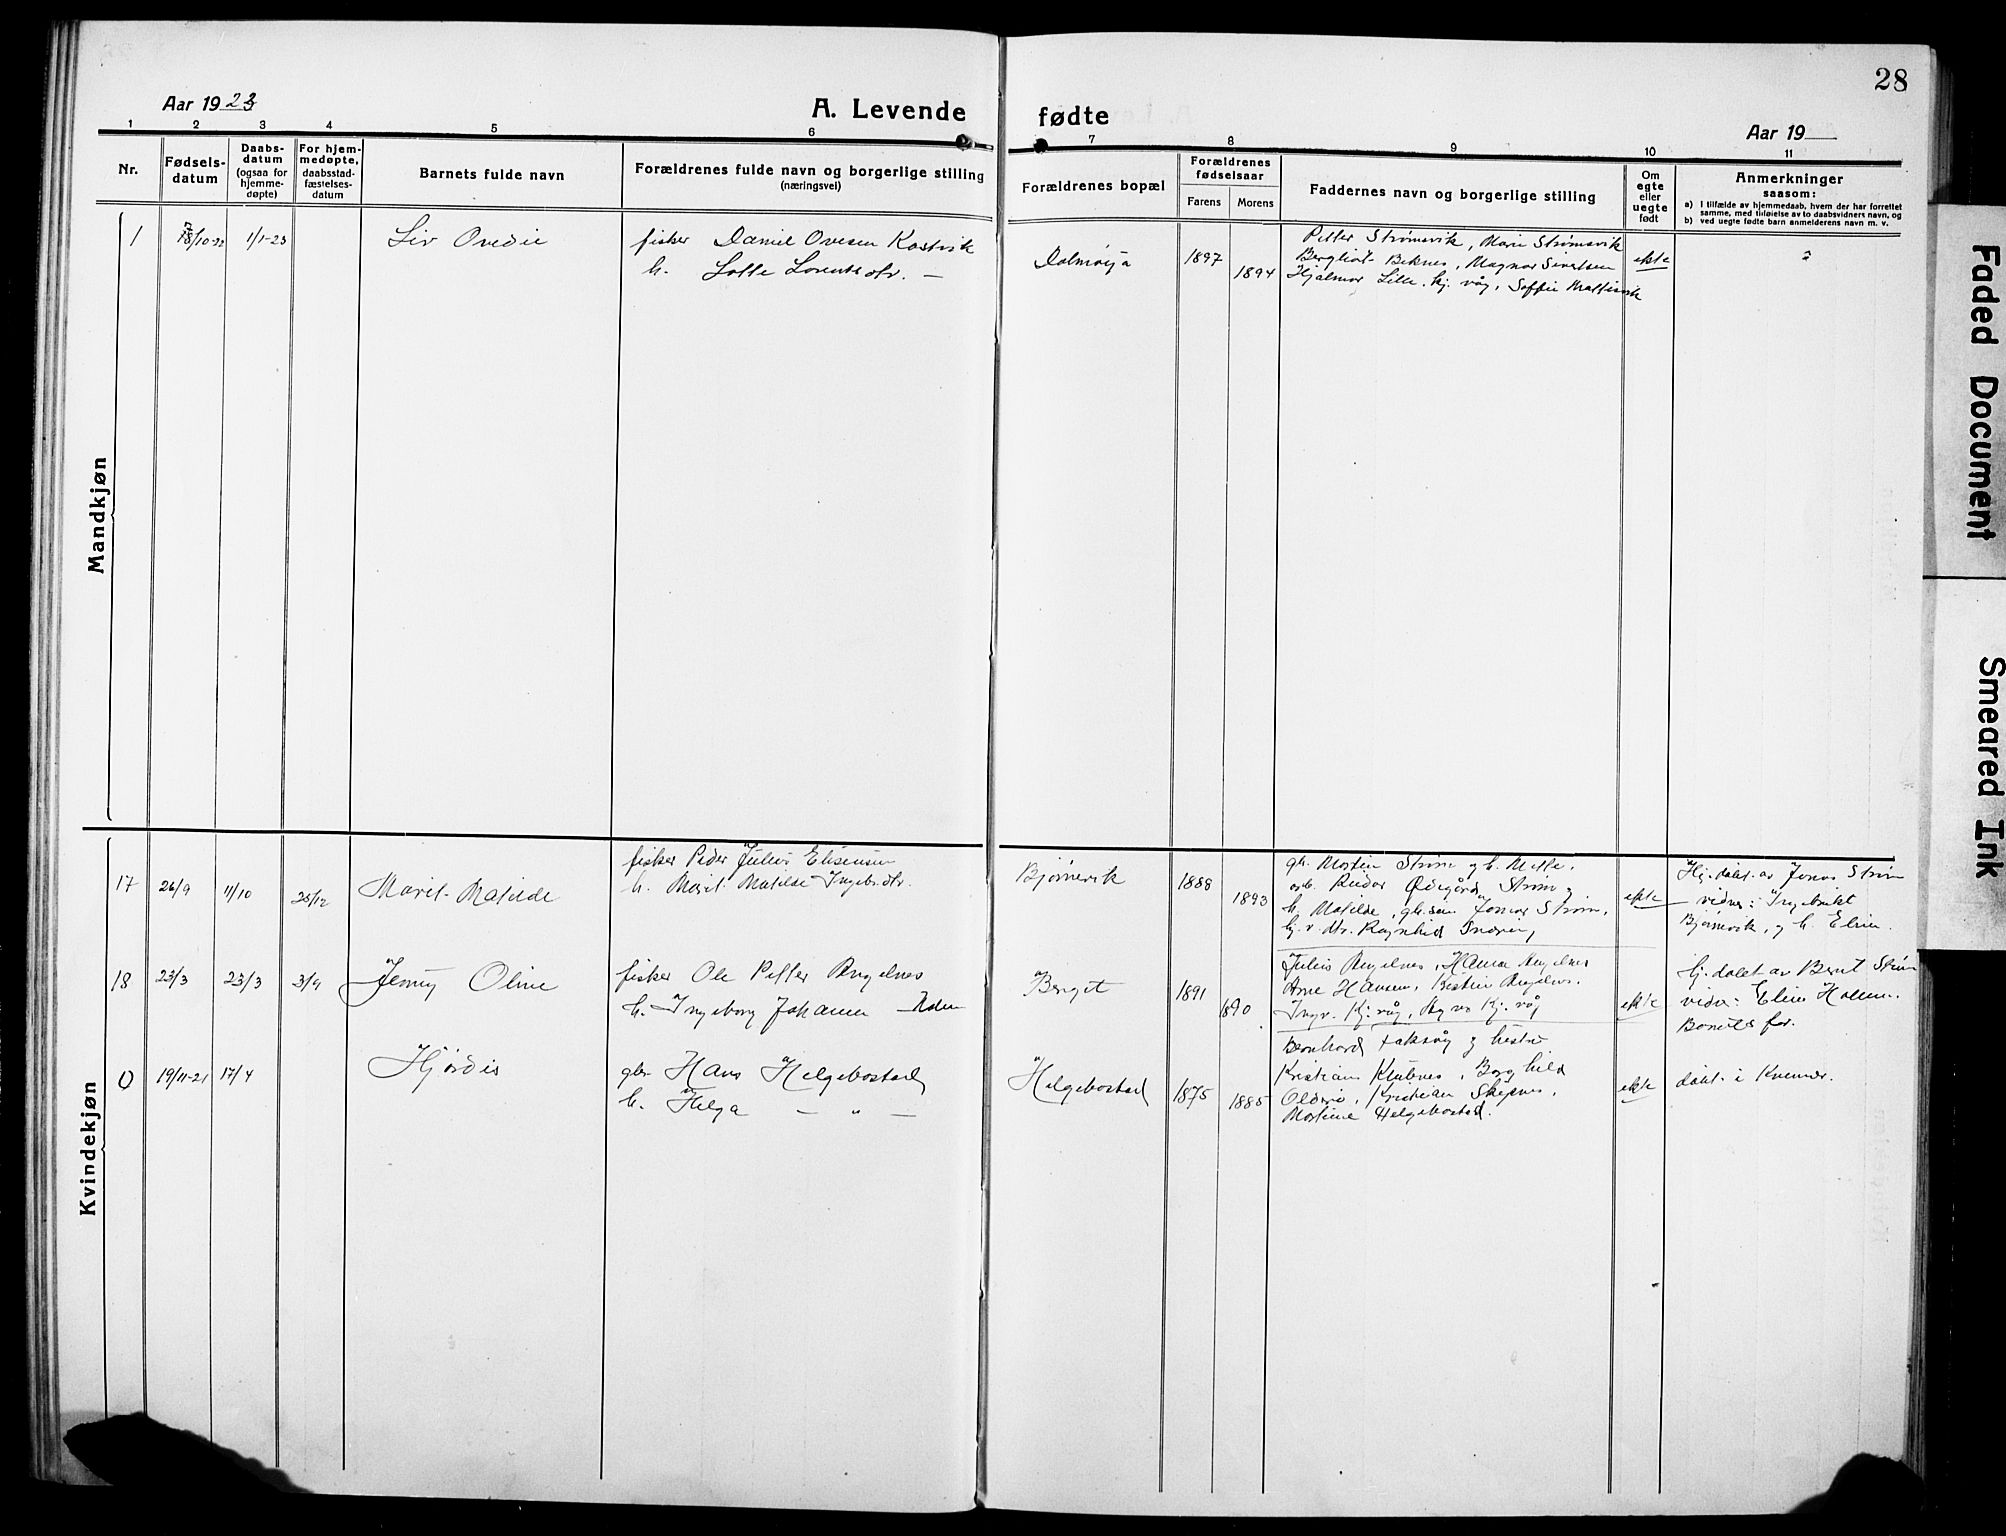 28
Aar 1923
A. Levende fødte
Aar 19
1 2 3 4 5 6 7 8 9 10 11
Nr.
Fødsels-
datum
Daabs-
datum
(ogsaa for
hjemme-
døpte)
For hjem-
medøpte,
daabsstad-
fæstelses-
datum
Barnets fulde navn
Forældrenes fulde navn og borgerlige stilling
(næringsvei)
Forældrenes bopæl
Forældrenes
fødselsaar
Farens Morens
Faddernes navn og borgerlige stilling
Om
egte
eller
uegte
født
Anmerkninger
saasom:
a) I tilfælde av hjemmedaab, hvem der har forrettet
samme, med tilføielse av to daabsvidners navn, og
b) ved uegte fødte barn anmelderens navn m. v.
Mandkjøn
1 /10-22 1/1-23 Liv Ovedie
fisker Daniel Ovesen Kostvik
h. Lotte Lorentsdtr. —
Dolmøya 1897 1894
Petter Strømsvik, Marie Strømsvik
Bergliot Beknes, Magnar Sivertsen
Hjalmar Lille. kj. våg, Soffie
ekte
Kvindekjøn
17 26/9 11/10 26/12 Marit Matilde
fisker Peder Julius Elisensen
h. Marit Matilde Ingebr.dtr.
Bjørnevik 1888 1893
gb. Morten Strøm og h. Mette.
arb. Reidar Ødegård Strøm og
h. Matilde, gb. søn Jonas Strøm,
kj. v. dtr. Ragnhild
ekte
Hj. døbt av Jonas Strøm
vidner: Ingebrikt
Bjørnevik, og h. Elen.
18 23/3 23/3 3/9 Jenny Oline
fisker Ole Petter Angelnes
h. Ingeborg Johanna
Berget 1891 1890
Julius Angelnes, Hanna Angelnes
Arne Hansen,
Ingv. Kj. våg, Kj. våg
ekte
hj. døbt av Bernt Strøm
vidn: Eline
0 19/11-21 17/4 Hjørdis
gbr. Hans Helgebostad
h. Helga — „ —
Helgebostad 1875 1885
Bernhard Laksåg og hustru
Kristian Klubnes, Borghild
Olderø, Kristian Skipnes,
Martine Helgebostad.
ekte
døbt i Kvenvær.
Faded Document
Smeared Ink